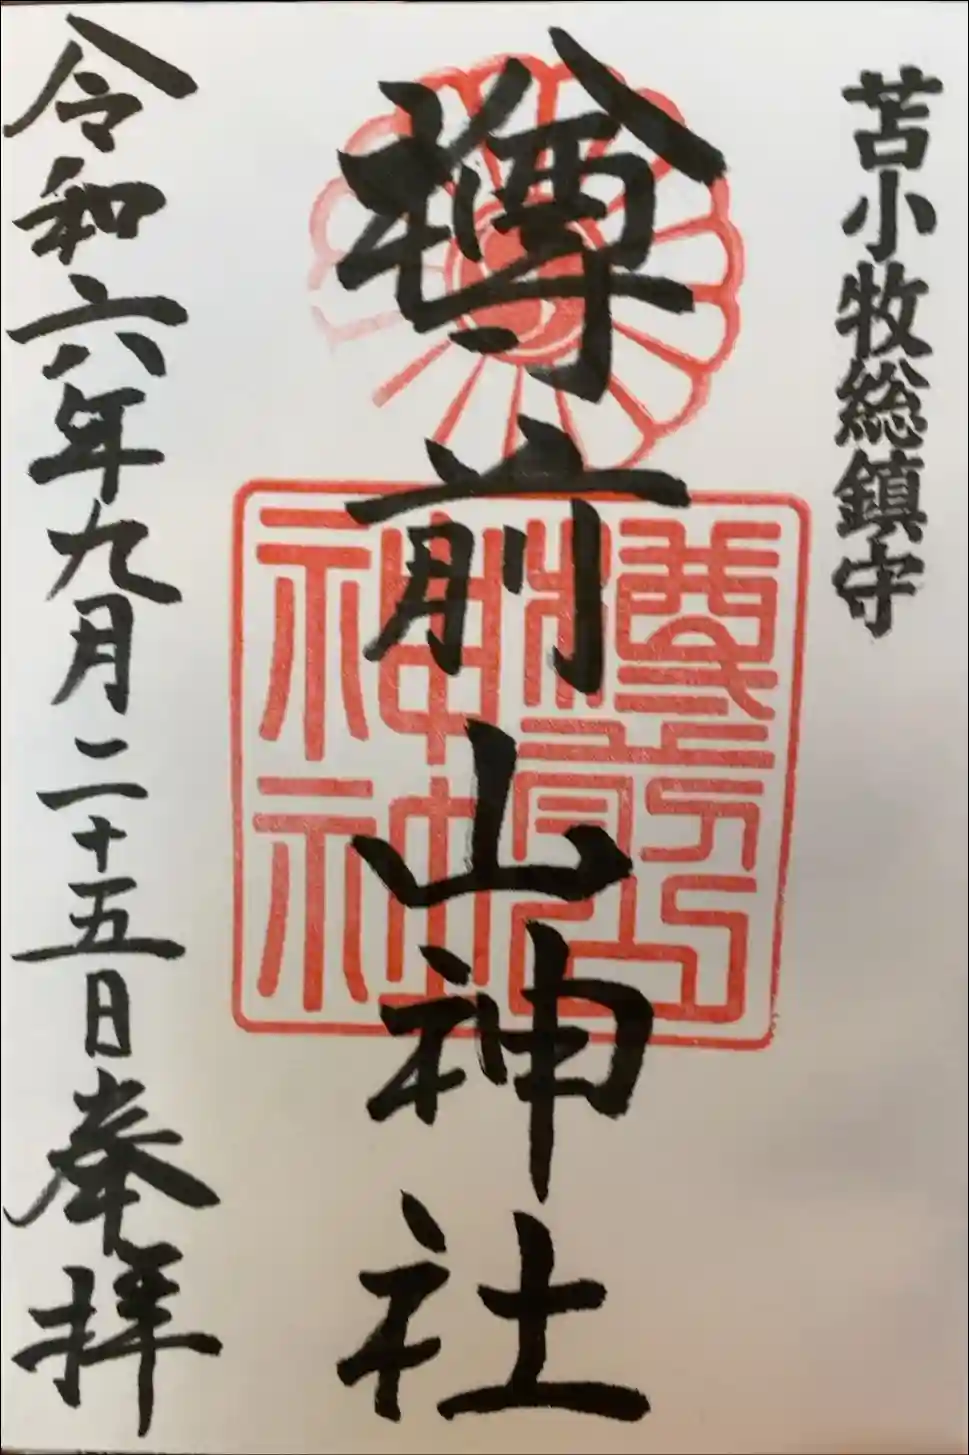 苫小牧総鎮守
樽前山神社
令和六年九月二十五日奉拝